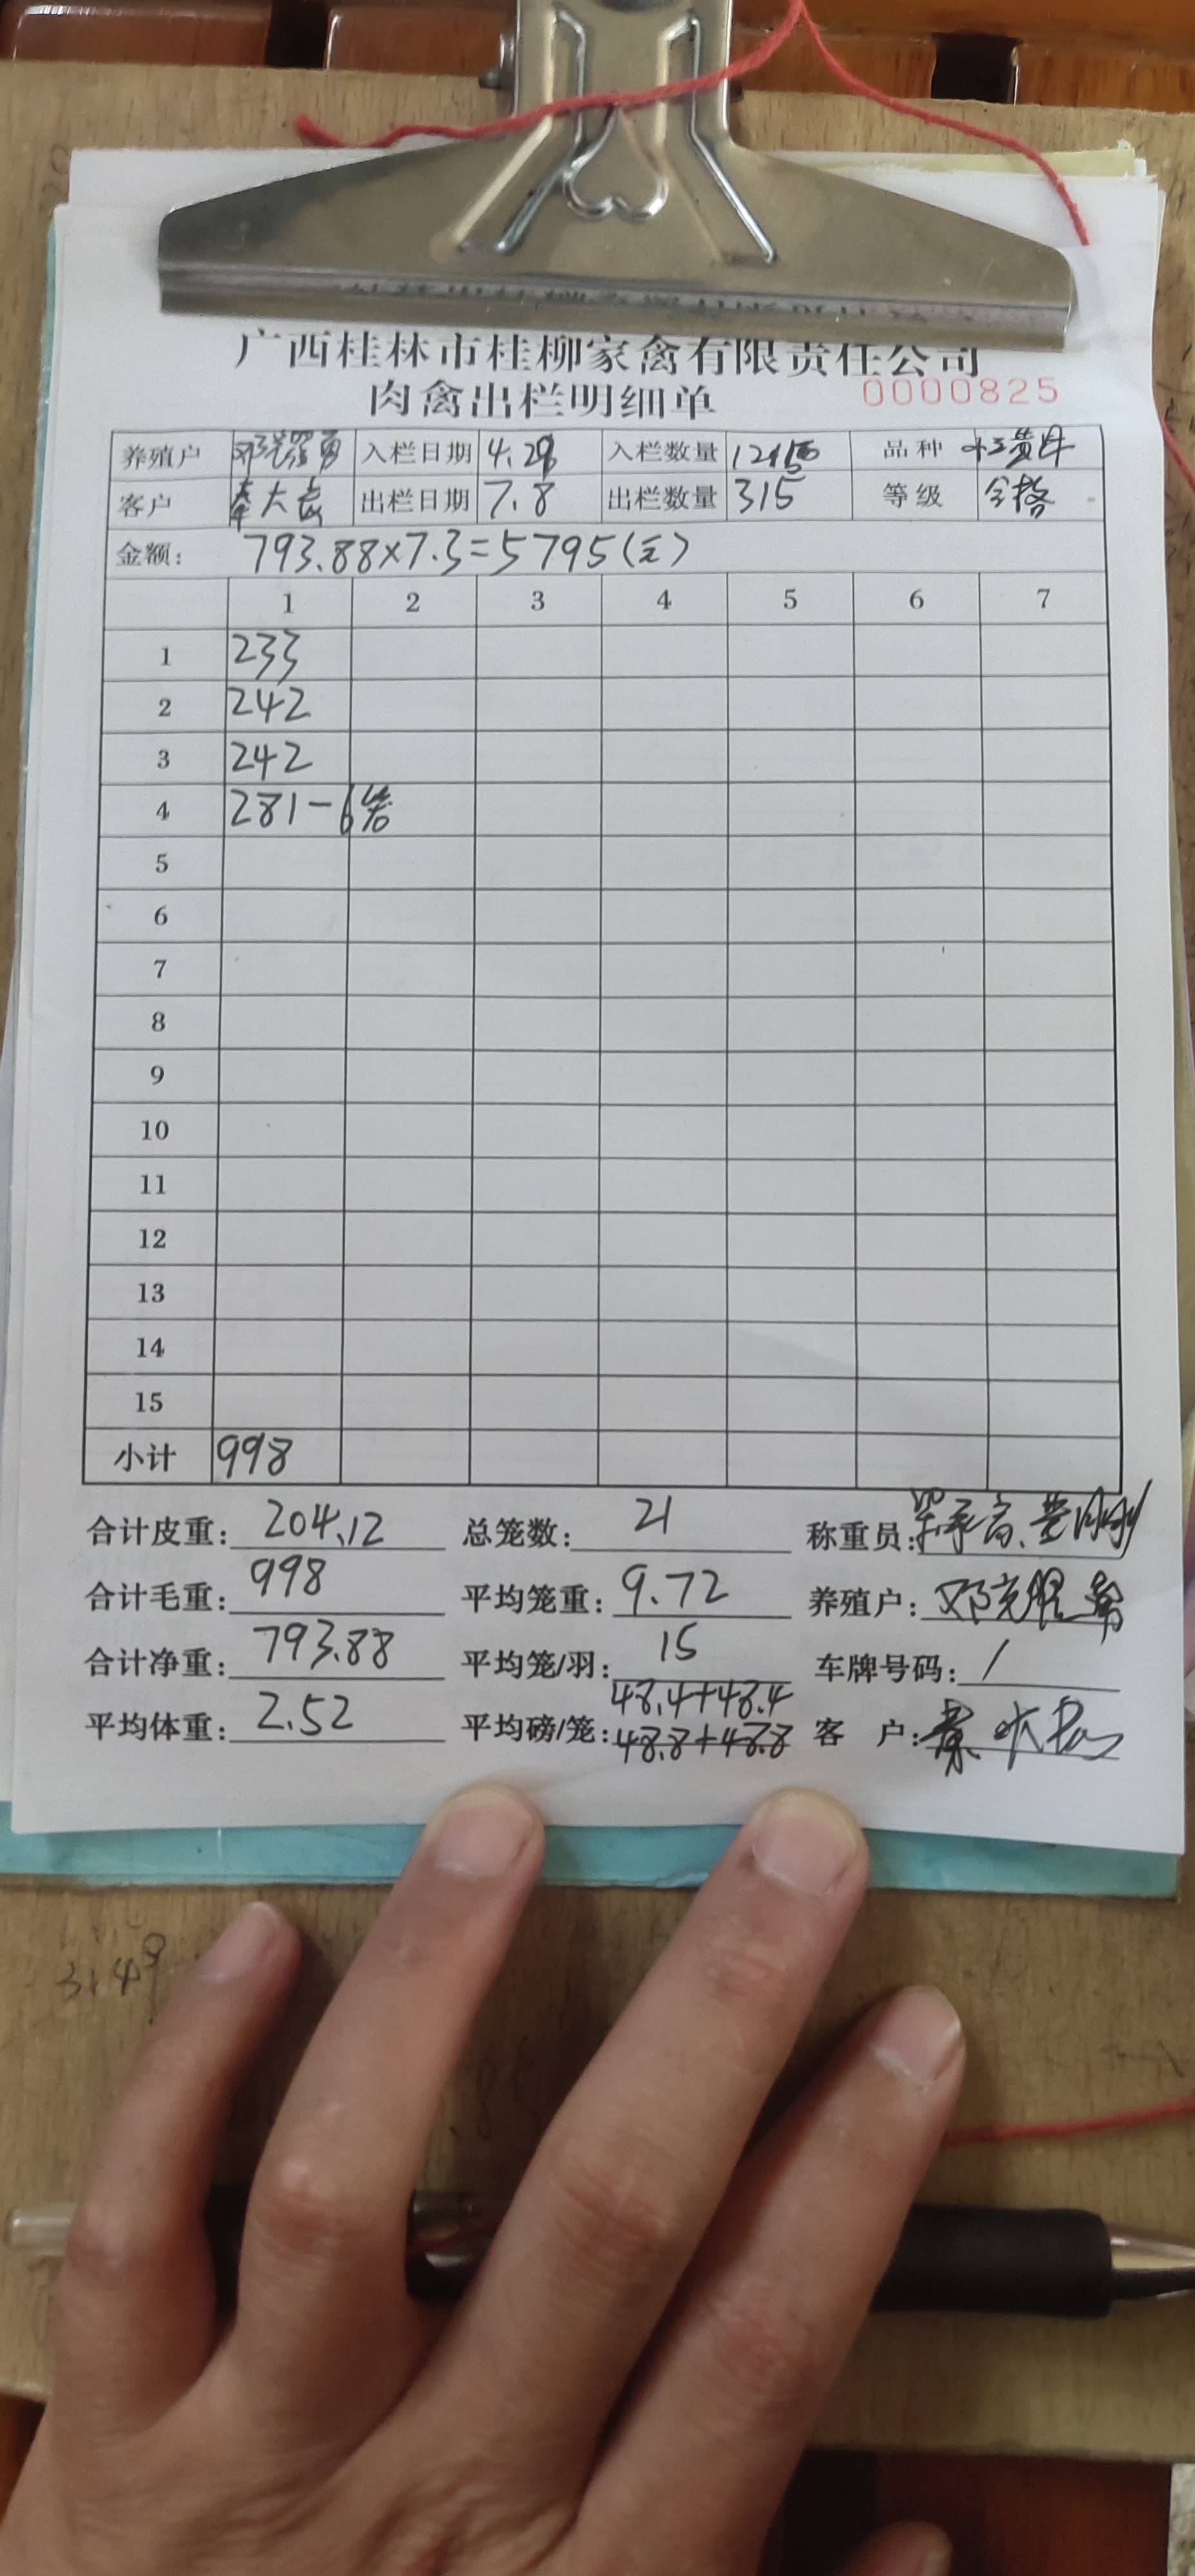 广西桂林市桂柳家禽有限责任公司
肉禽出栏明细单 0000825
养殖户 入栏日期 4.28 入栏数量 品种
客户 秦大长 出栏日期 7.8 出栏数量 315 等级 合格
金额: 793.88×7.3=5795(元)
1 2 3 4 5 6 7
1 233
2 242
3 242
4 281-6笼
5
6
7
8
9
10
11
12
13
14
15
小计 998
合计皮重: 204.12 总笼数: 21 称重员:
合计毛重: 998 平均笼重: 9.72 养殖户:
合计净重: 793.88 平均笼/羽: 15 车牌号码: /
平均体重: 2.52 平均磅/笼: 48.4+48.4 客 户:
48.8+48.8